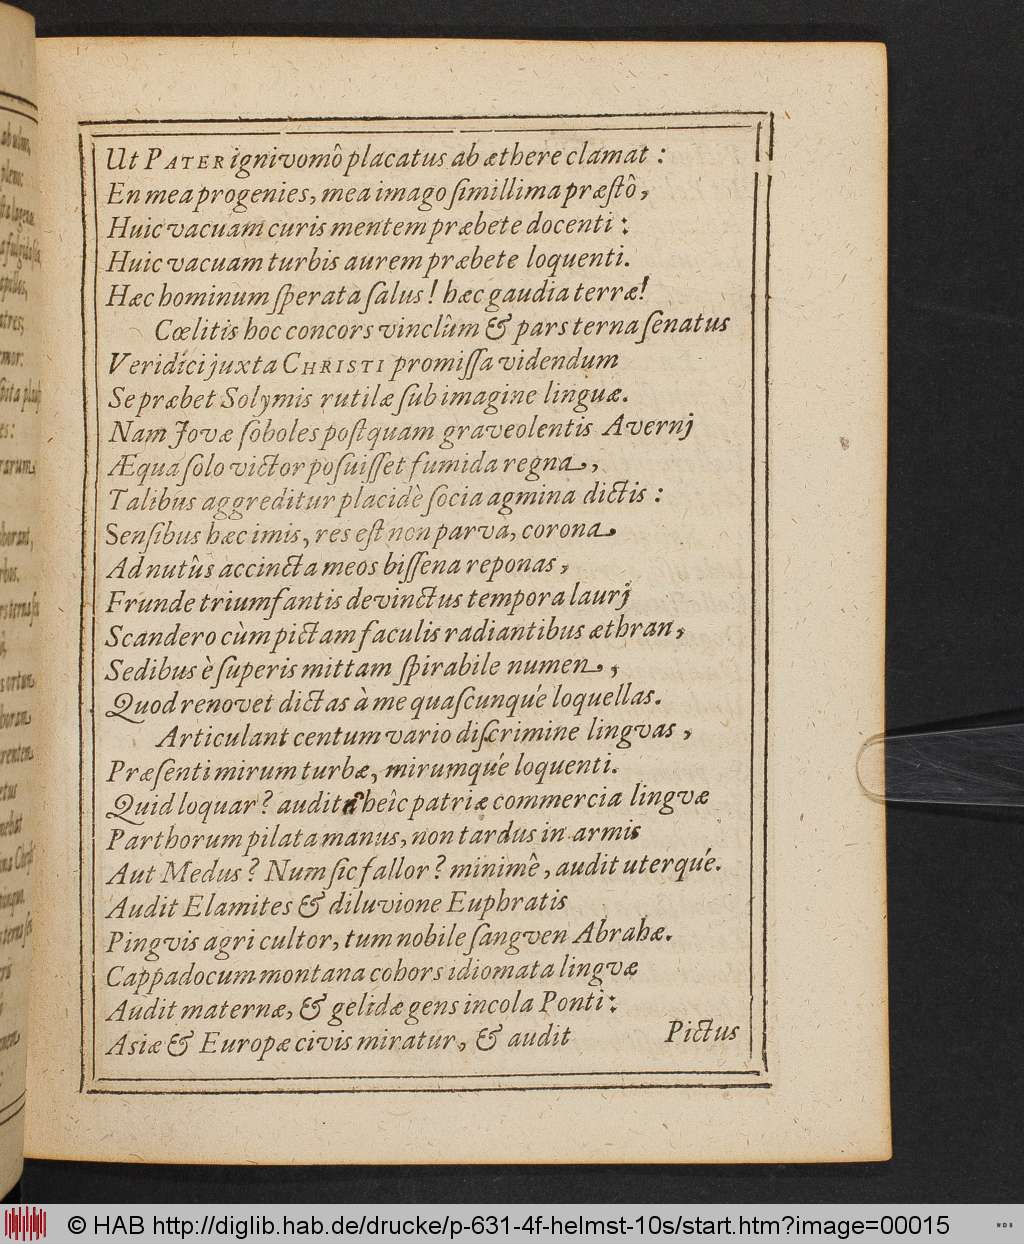 Ut PATER ignivomô placatus ab æthere clamat :
En mea progenies, mea imago ſimillima præſtô,
Huic vacuam curis mentem præbete docenti :
Huic vacuam turbis aurem præbete loquenti.
Hæc hominum ſperata ſalus! hæc gaudia terræ!
Cœlitis hoc concors vinclûm & pars terna ſenatus
Veridíci juxta CHRISTI promiſſa videndum
Se præbet Solymis rutilæ ſub imagine linguæ.
Nam Jovæ ſoboles poſtquam graveolentis Avernj
Æqua ſolo victor poſuiſſet fumida regna,
Talibus aggreditur placidè ſocia agmina dictis :
Senſibus hæc imis, res eſt non parva, corona
Ad nutûs accincta meos biſſena reponas,
Frunde triumfantis devinctus tempora laurj
Scandero cùm pictam faculis radiantibus æthran,
Sedibus è ſuperis mittam ſpirabile numen,
Quod renovet dictas à me quaſcunqúe loquellas.
Articulant centum vario diſcrimine lingvas,
Præſenti mirum turbæ, mirumqúe loquenti.
Quid loquar? audit heîc patriæ commercia lingvæ
Parthorum pilata manus, non tardus in armis
Aut Medus? Num ſic fallor? minimê, audit uterqúe.
Audit Elamites & diluvione Euphratis
Pingvis agri cultor, tum nobile ſangven Abrahæ.
Cappadocum montana cohors idiomata lingvæ
Audit maternæ, & gelidæ gens incola Ponti :
Asiæ & Europæ civis miratur, & audit
Pictus
© HAB http://diglib.hab.de/drucke/p-631-4f-helmst-10s/start.htm?image=00015